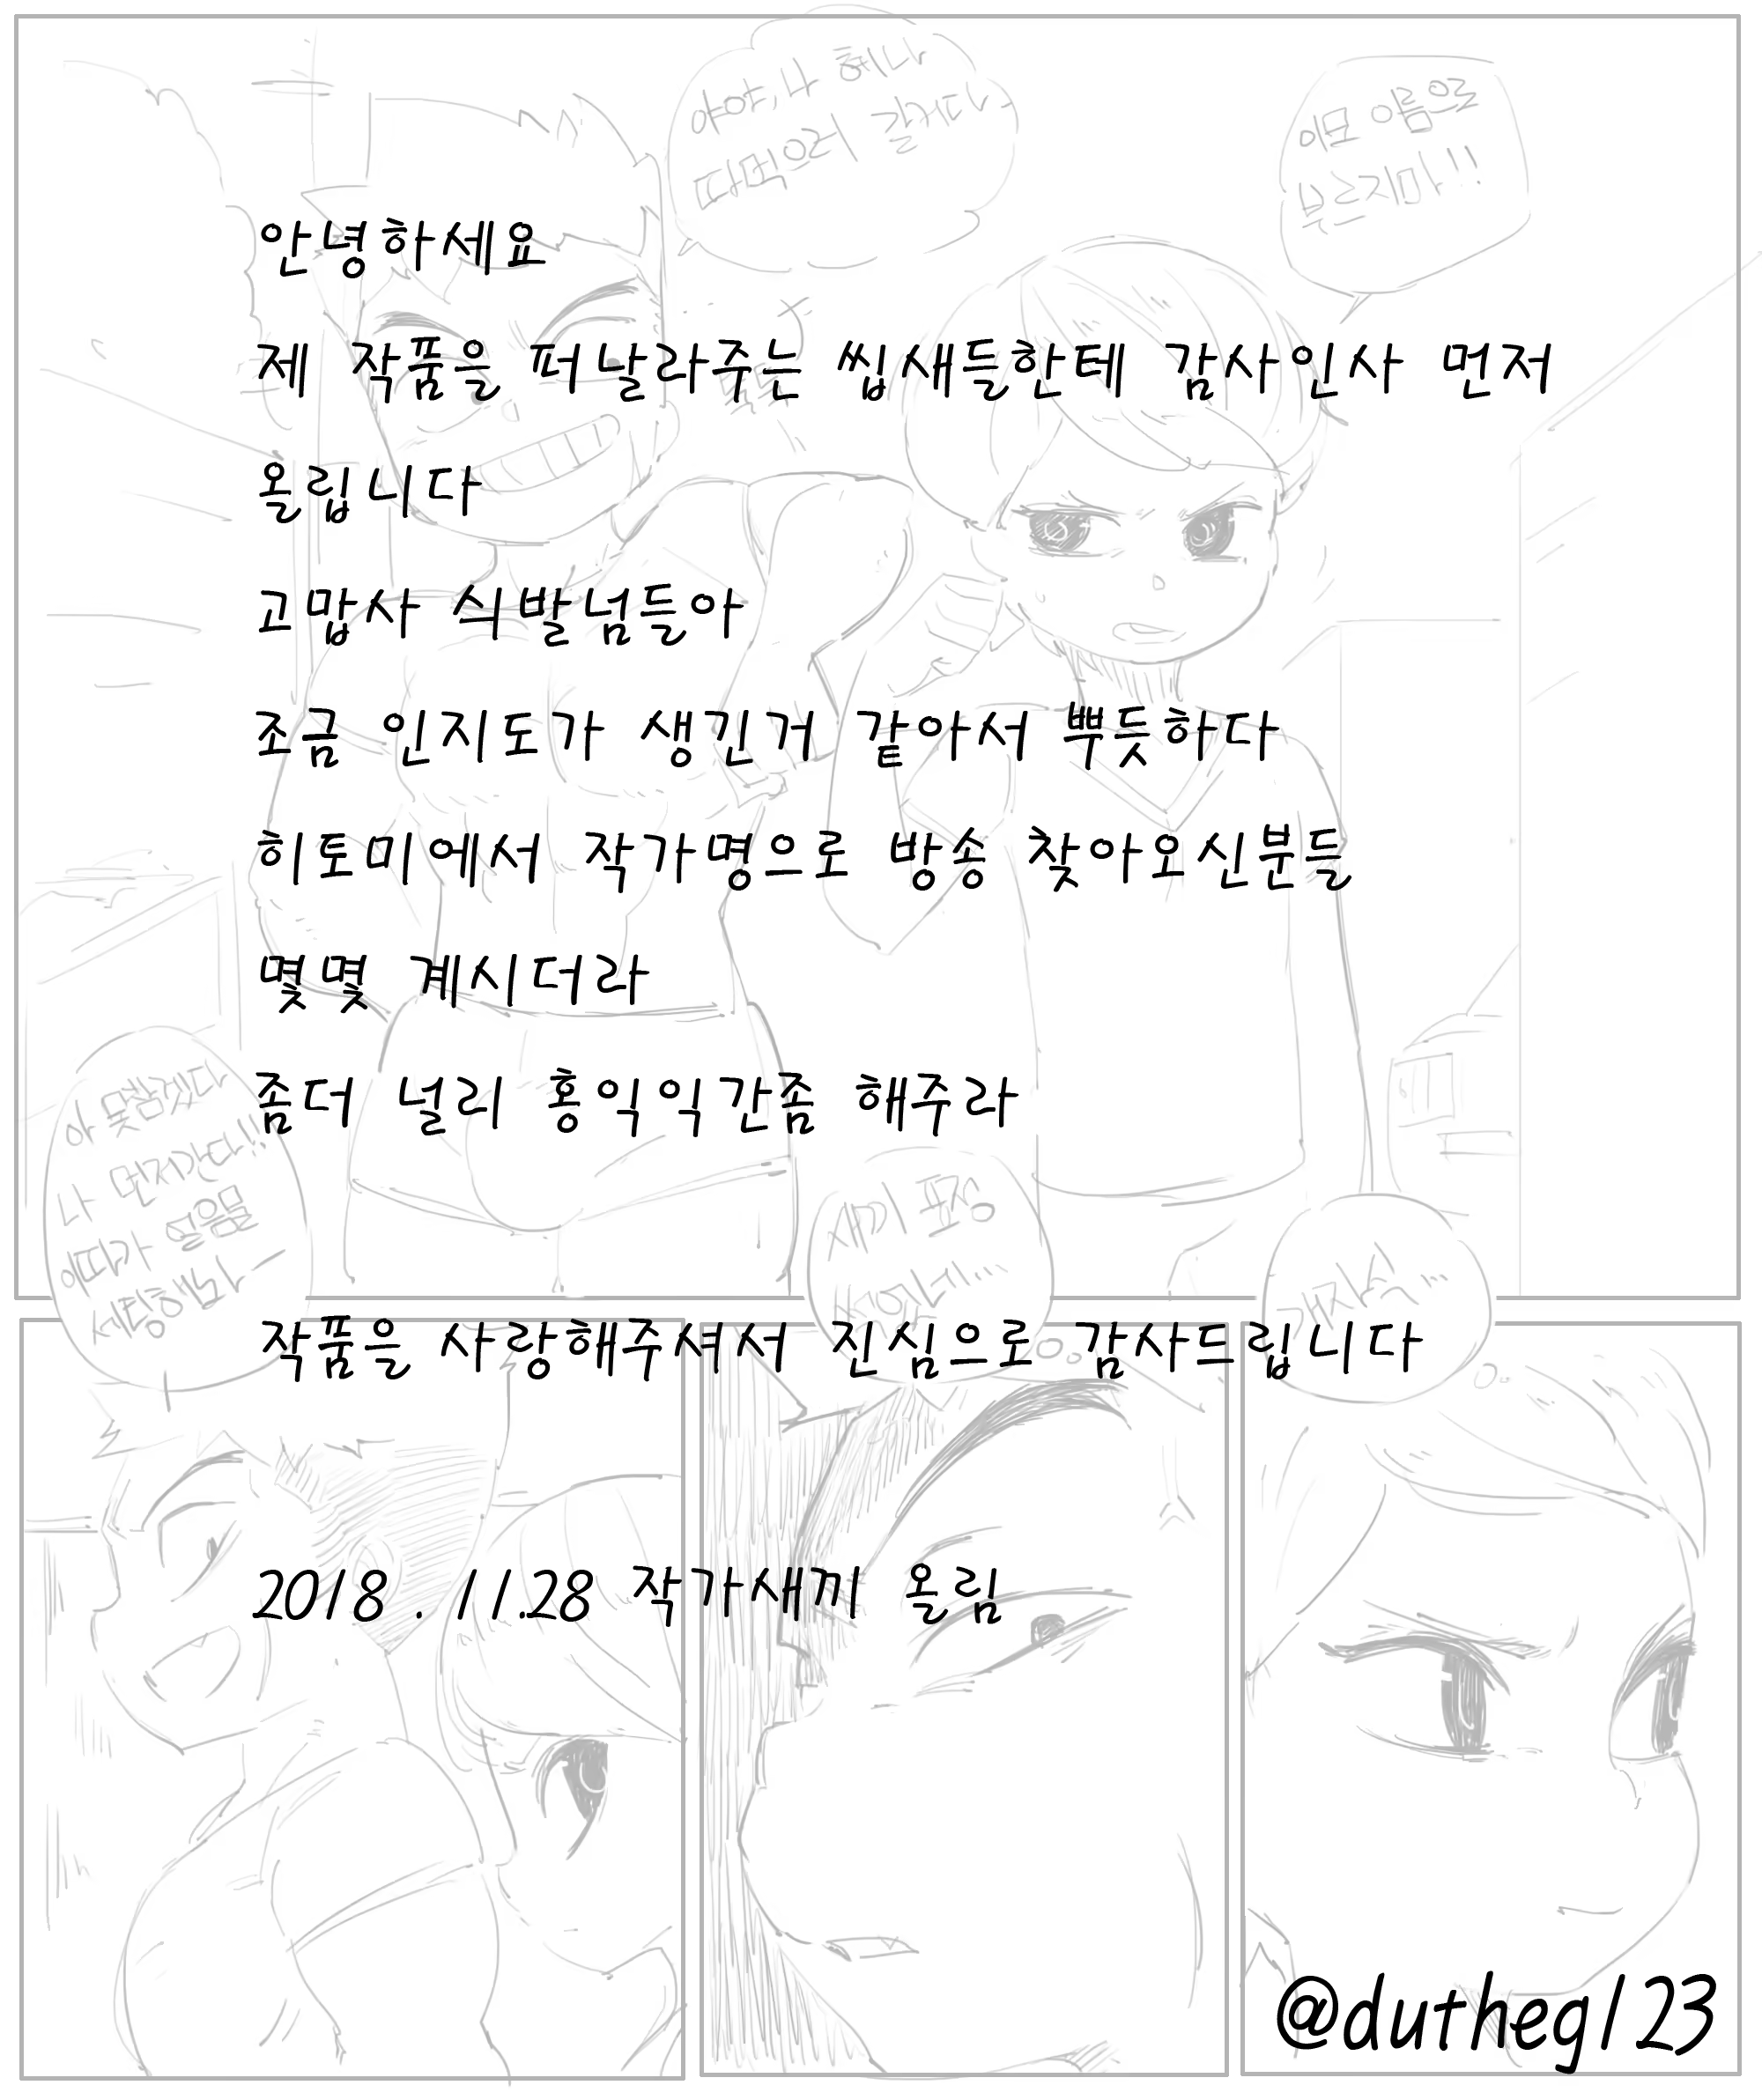 야야, 나 헤나
따먹으러 갈거다
이모 이름으로
부르지마!!
안녕하세요
제 작품을 퍼날라주는 씹새들한테 감사인사 먼저
올립니다
고맙사 싀발넘들아
조금 인지도가 생긴거 같아서 뿌듯하다
히토미에서 작가명으로 방송 찾아오신분들
몇몇 계시더라
좀더 널리 홍익익간좀 해주라
아 못참겠다
나 먼저간다!!
이따가 얼음물
새끼 표정
개자식...
작품을 사랑해주셔서 진심으로 감사드립니다
2018 . 11.28 작가새끼 올림
@dutheg123